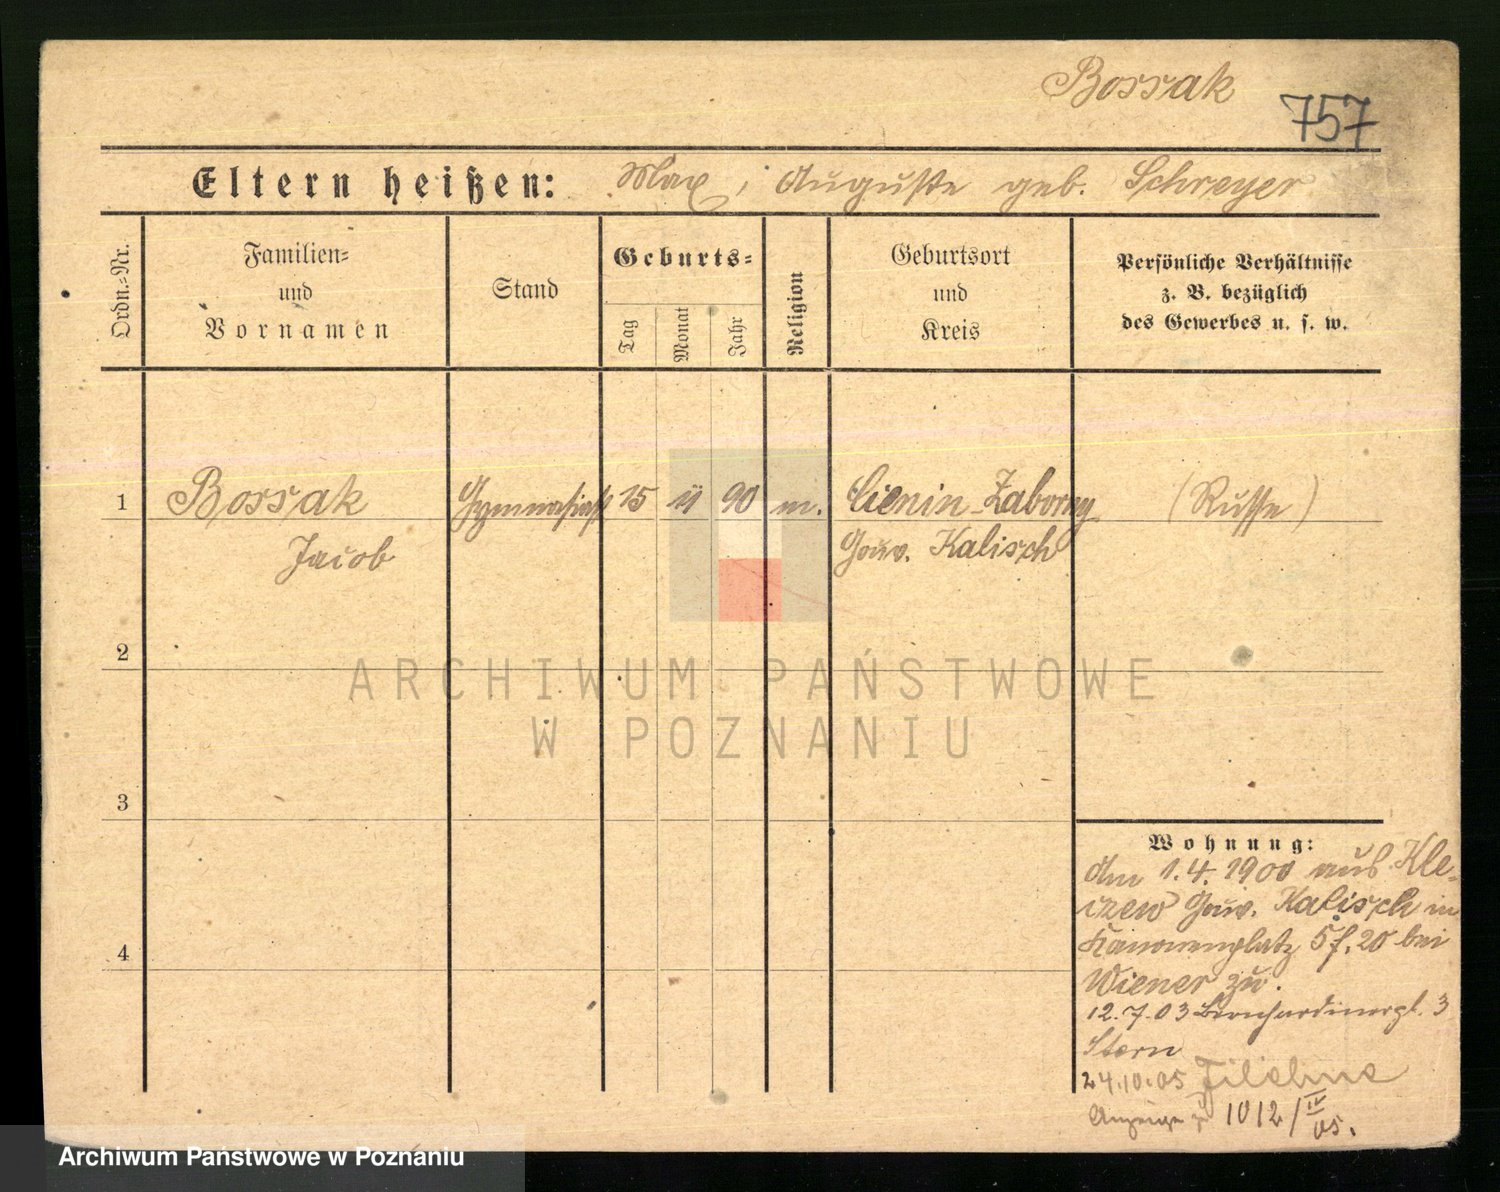 Bossak
757
Eltern heißen: Max, Auguste geb. Schreyer
Ordn.-Nr.
Familien-
und
Vornamen
Stand
Geburts-
Tag
Monat
Jahr
Religion
Geburtsort
und
Kreis
Persönliche Verhältnisse
z. B. bezüglich
des Gewerbes u. s. w.
1 Bossak Gymnasiast 15 11 90 m. Cienin-Zaborny (Russe)
Jacob Gouv. Kalisch
2
3
4
Wohnung:
Am 1.4.1900 aus Kle-
czew Gouv. Kalisch in
Kanonenplatz 5 f. 20 bei
Wiener zu.
12.7.03 Bernhardinerpl. 3
Stern
24.10.05 Filehne
Anzeige zu 1012/IV 05.
ARCHIWUM PAŃSTWOWE
W POZNANIU
Archiwum Państwowe w Poznaniu